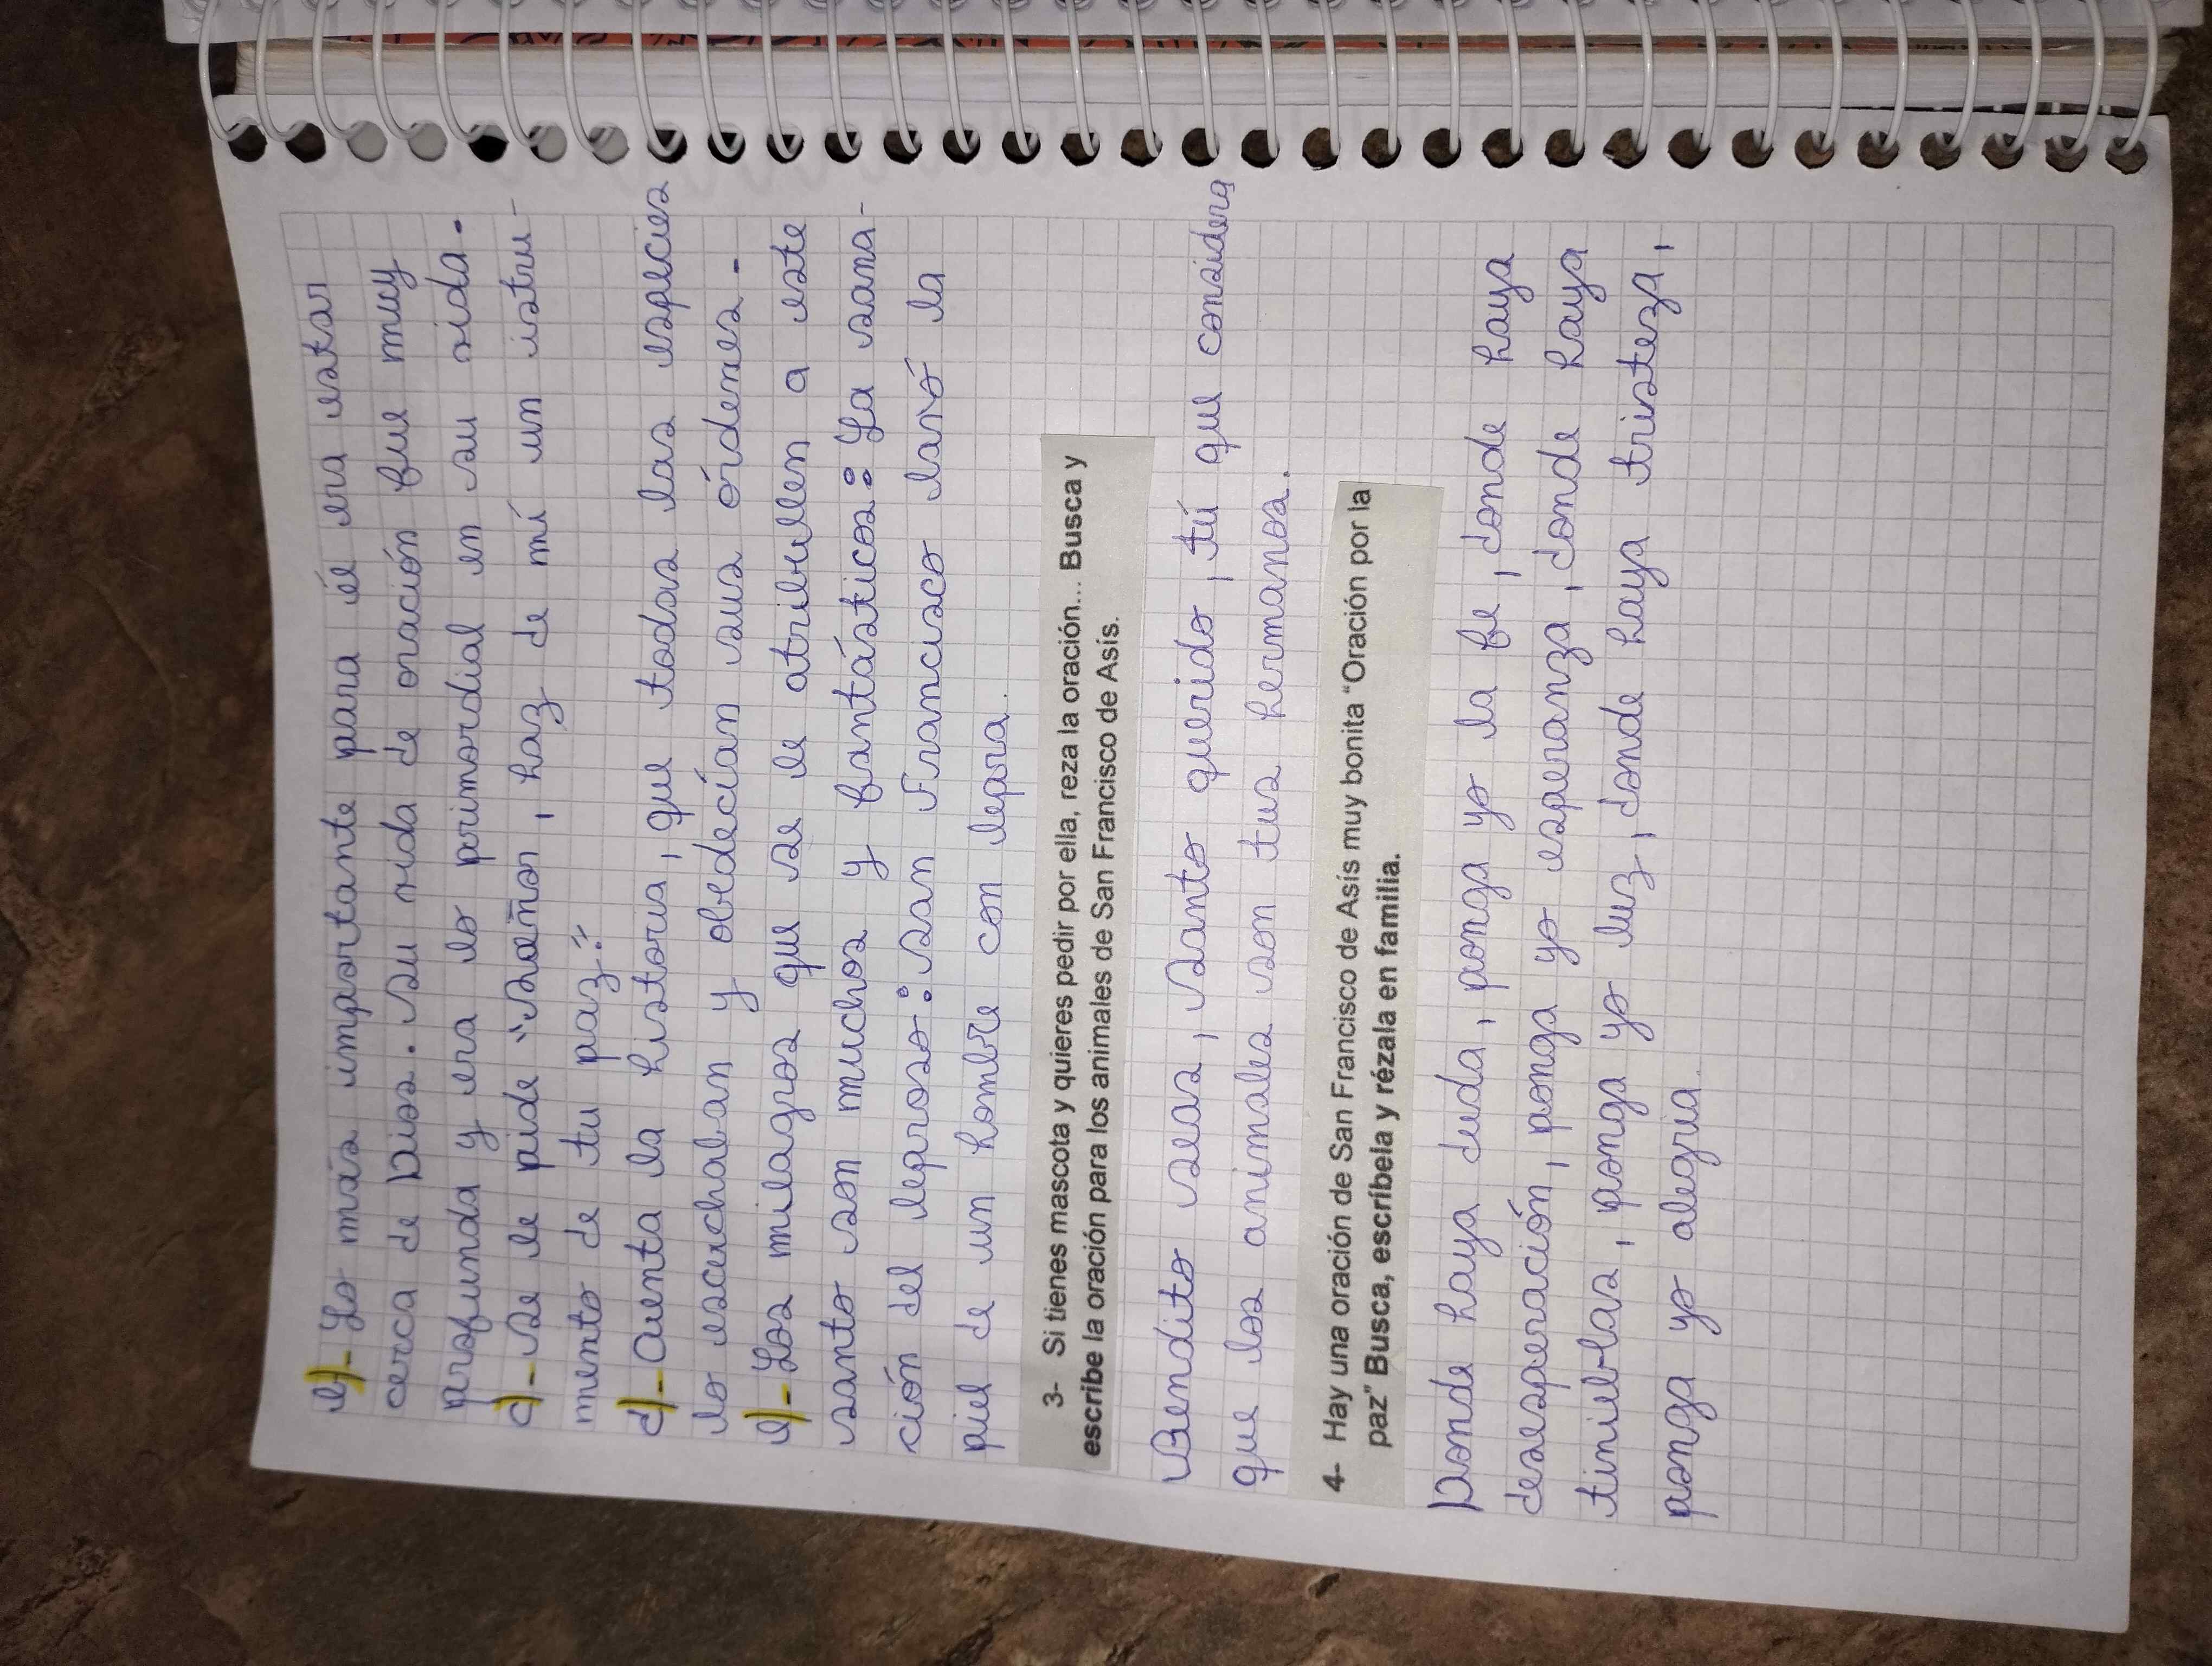 b)- Lo más importante para él era estar
cerca de Dios. Su vida de oración fue muy
profunda y era lo primordial en su vida.
c)- Se le pide "Señor, haz de mí un istru-
mento de tu paz".
d)- Cuenta la historia, que todas las especies
lo escuchaban y obedecían sus órdenes.-
e)- Los milagros que se le atribullen a este
santo son muchos y fantásticos: La sana-
ción del leproso: San Francisco lavó la
piel de un hombre con lepra.
3- Si tienes mascota y quieres pedir por ella, reza la oración... Busca y
escribe la oración para los animales de San Francisco de Asís.
Bendito seas, Santo querido, tú que considera
que los animales son tus hermanos.
4- Hay una oración de San Francisco de Asís muy bonita "Oración por la
paz" Busca, escríbela y rézala en familia.
Donde haya duda, ponga yo la fe, donde haya
desesperación, ponga yo esperanza, donde haya
tinieblas, ponga yo luz, donde haya tristeza,
ponga yo alegria.